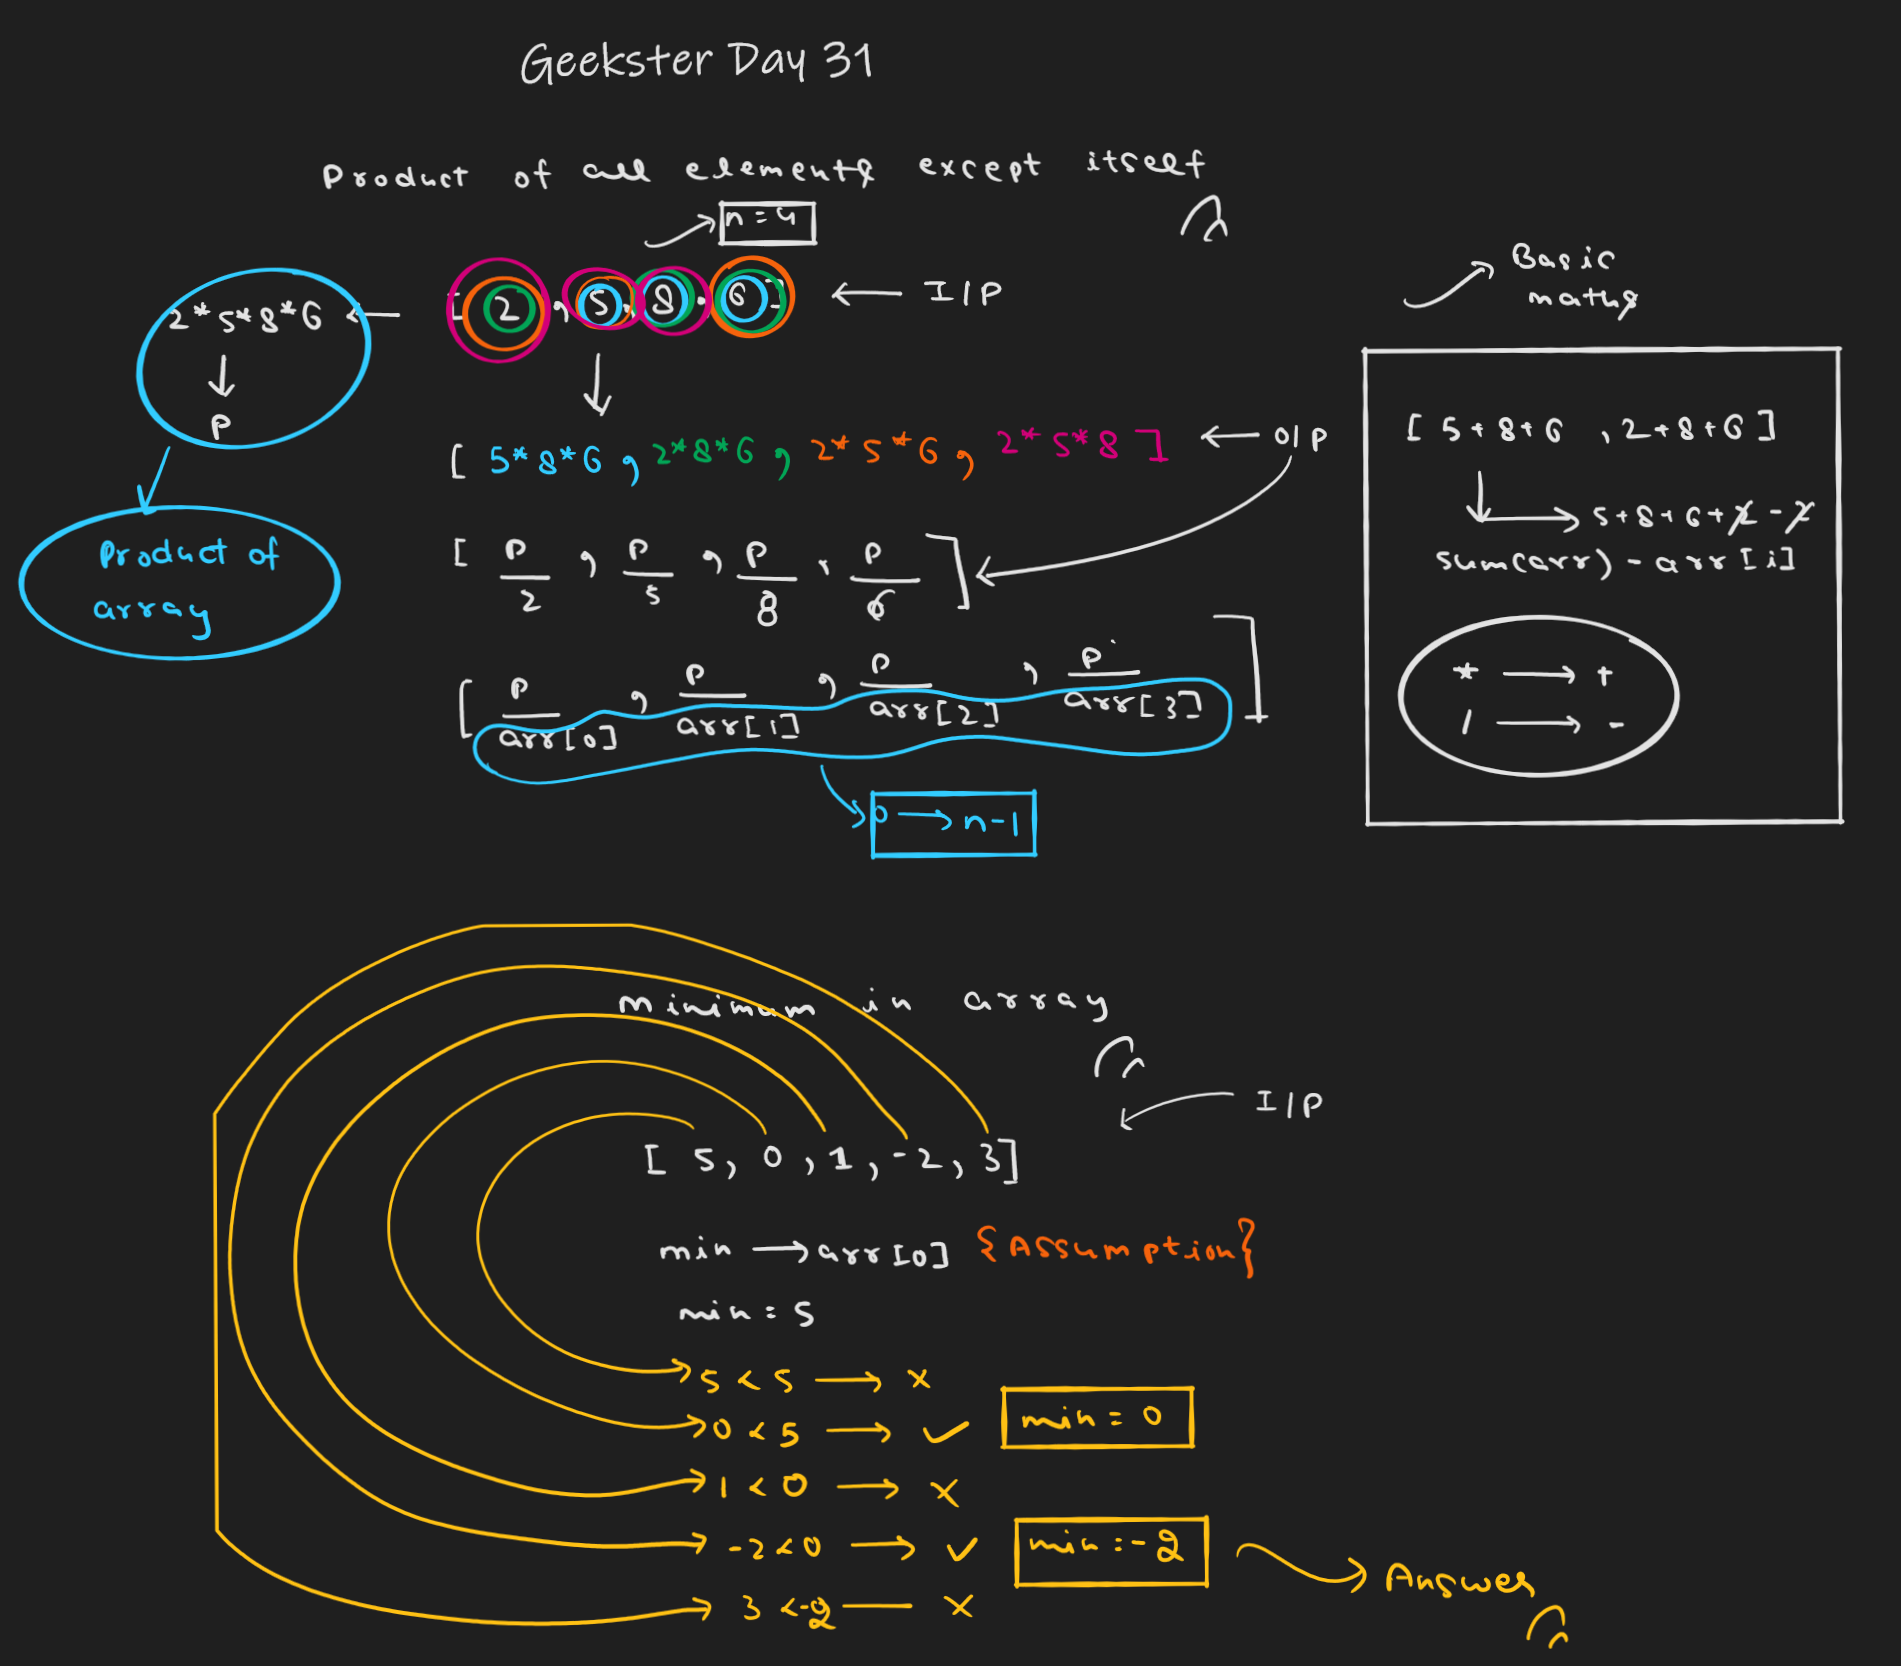 Geekster Day 31
Product of all elements except itself
n = 4
2*5*8*6 ← [ 2 , 5 , 8 , 6 ] ← I/P
↓
P
Product of
array
[ 5*8*6 , 2*8*6 , 2*5*6 , 2*5*8 ] ← O/P
[ P/2 , P/5 , P/8 , P/6 ]
[ P/arr[0] , P/arr[1] , P/arr[2] , P/arr[3] ]
0 → n-1
Basic
maths
[ 5+8+6 , 2+8+6 ]
→ 5+8+6+2-2
sum(arr) - arr[i]
* → +
/ → -
minimum in array
I/P
[ 5, 0, 1, -2, 3]
min → arr[0] {Assumption}
min = 5
5 < 5 → x
0 < 5 → ✓ min = 0
1 < 0 → x
-2 < 0 → ✓ min = -2 → Answer
3 < -2 — x